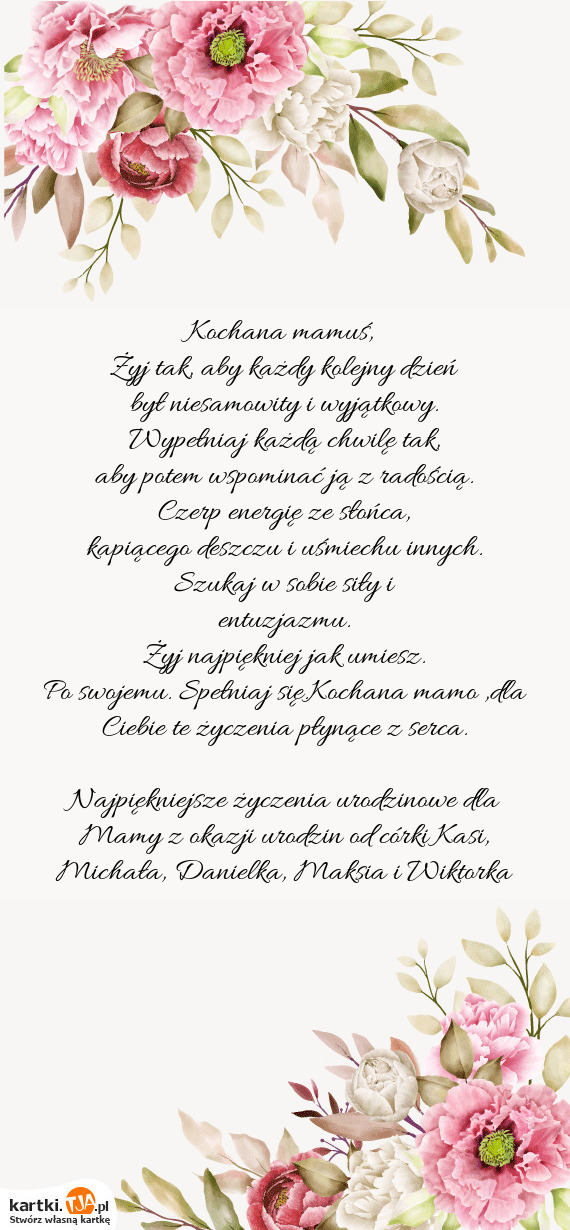 Kochana mamuś,
Żyj tak, aby każdy kolejny dzień
był niesamowity i wyjątkowy.
Wypełniaj każdą chwilę tak,
aby potem wspominać ją z radością.
Czerp energię ze słońca,
kapiącego deszczu i uśmiechu innych.
Szukaj w sobie siły i
entuzjazmu.
Żyj najpiękniej jak umiesz.
Po swojemu. Spełniaj się.Kochana mamo ,dla
Ciebie te życzenia płynące z serca.

Najpiękniejsze życzenia urodzinowe dla
Mamy z okazji urodzin od córki Kasi,
Michała, Danielka, Maksia i Wiktorka
kartki.TJA.pl
Stwórz własną kartkę